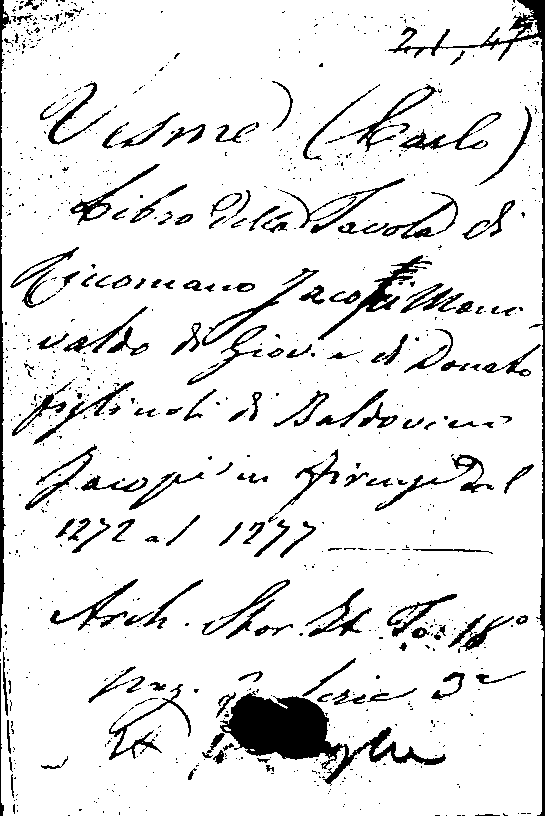 2,1,47
Visme (Carlo)
Libro della Tavola di
Riccomano Jacopi Mano
valdo di Giov. e di Donato
figliuoli di Baldovino
Jacopi in Firenze Dal
1272 al 1277
Arch. Stor. It. To: 18º
pag. Serie 3ª